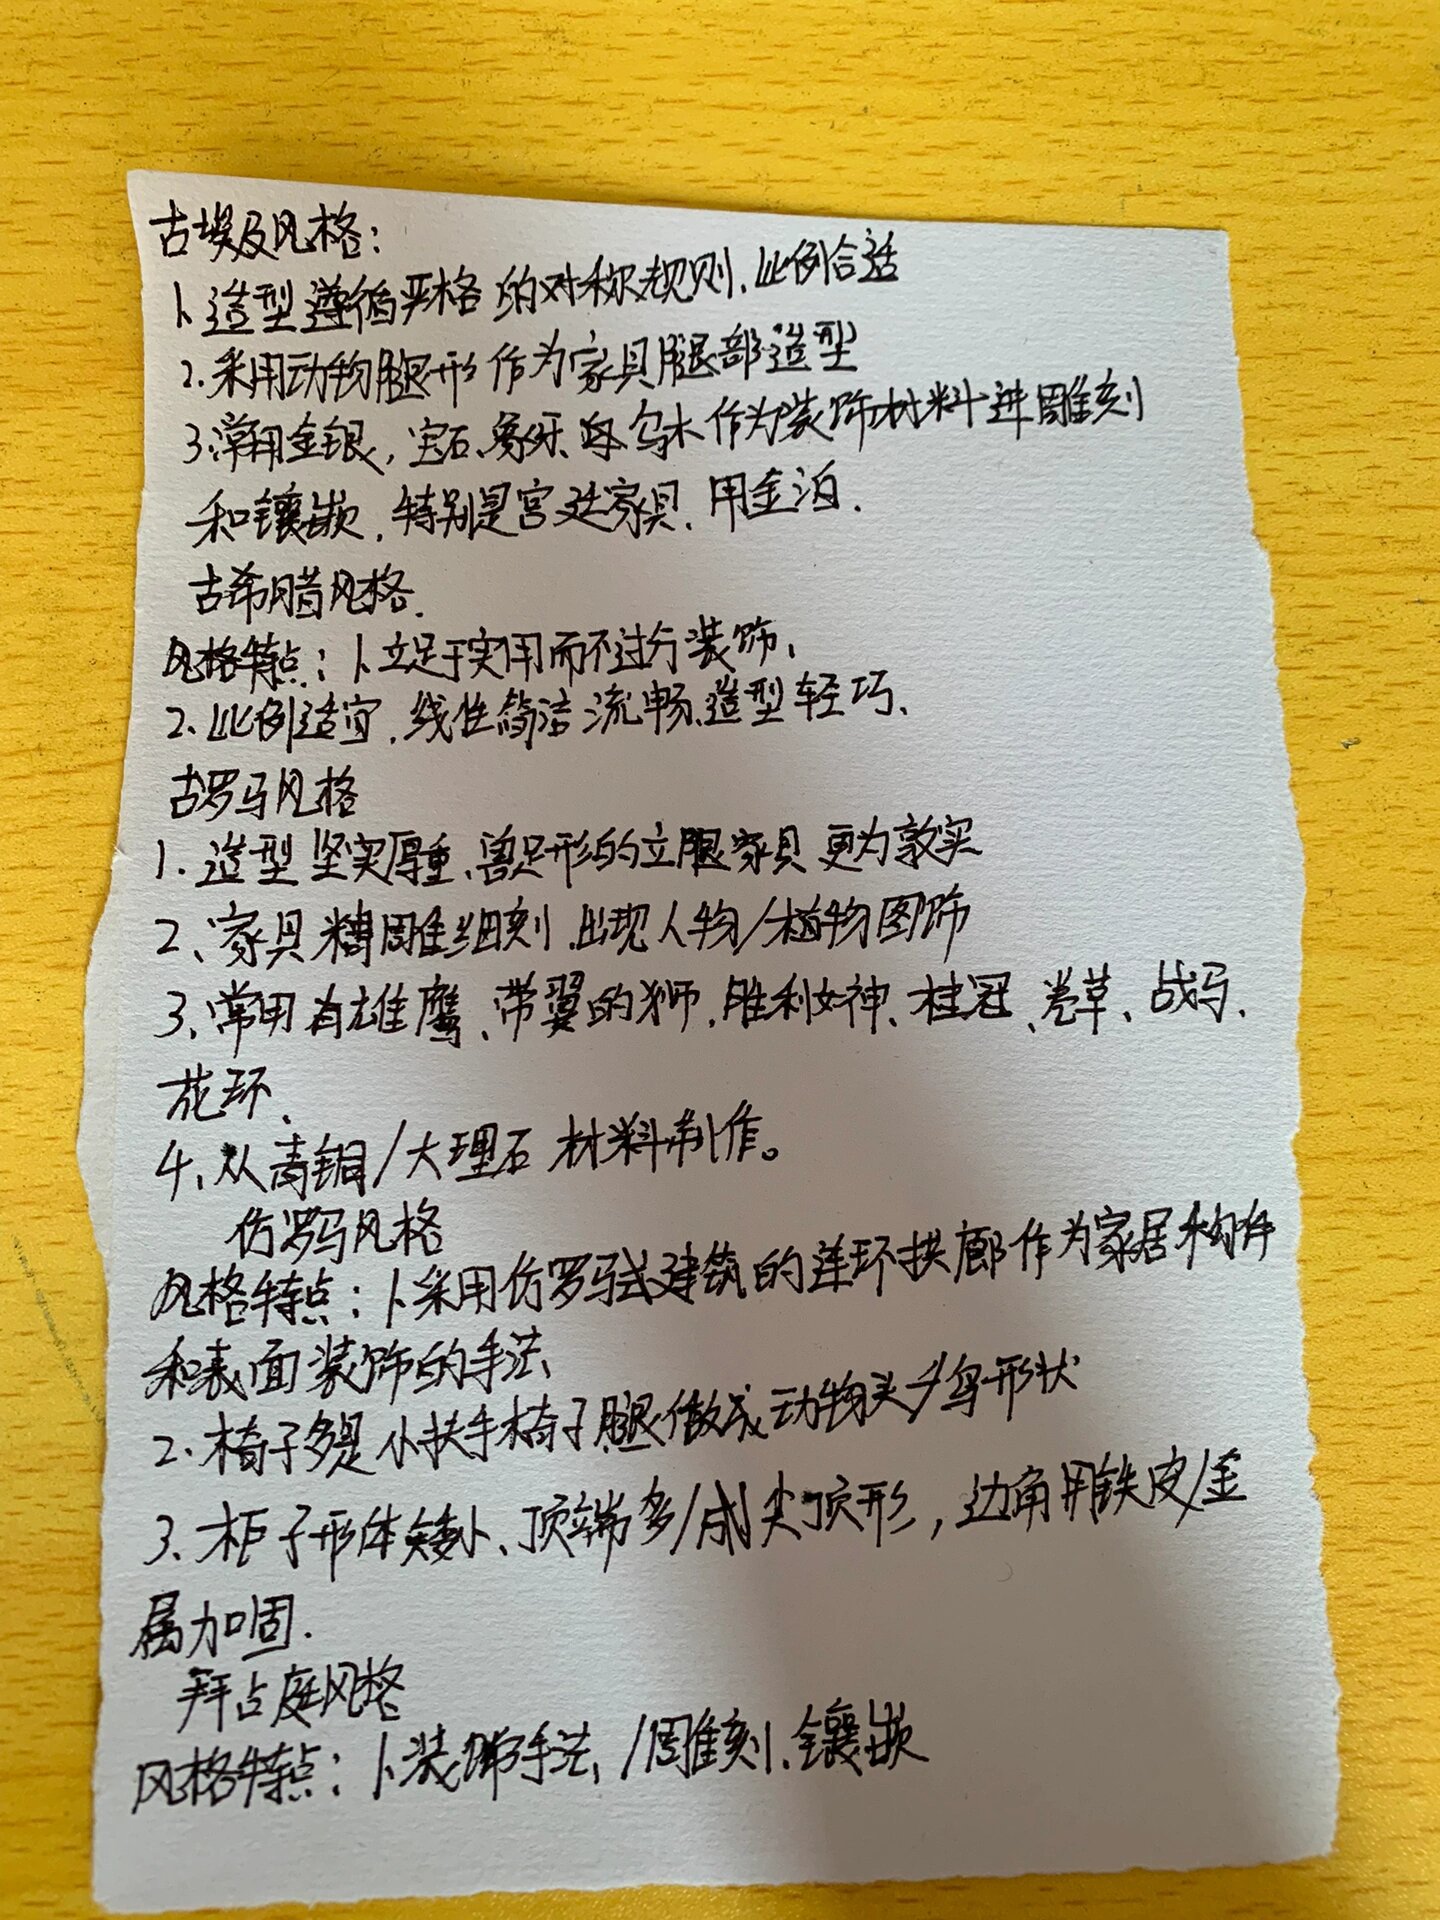 古埃及风格：
1.造型遵循严格的对称规则、比例合适
2.采用动物腿形作为家具腿部造型
3.常用金银，宝石、象牙、乌木作为装饰材料进雕刻
和镶嵌，特别是宫廷家具、用金泊.
古希腊风格.
风格特点：1.立足于实用而不过分装饰、
2.比例适宜、线性简洁流畅、造型轻巧、
古罗马风格
1.造型坚实厚重、兽足形的立腿家具更为敦实
2、家具精雕细刻、出现人物/植物图饰
3、常用有雄鹰、带翼的狮、胜利女神、桂冠、卷草、战马、
花环、
4、从青铜/大理石材料制作。
仿罗马风格
风格特点：1.采用仿罗马式建筑的连环拱廊作为家居构件
和表面装饰的手法、
2.椅子多是小扶手椅子腿做成动物头/鸟形状
3、柜子形体矮小、顶端多/成尖顶形，边角用铁皮/金
属加固.
拜占庭风格
风格特点：1.装饰手法、/雕刻、镶嵌